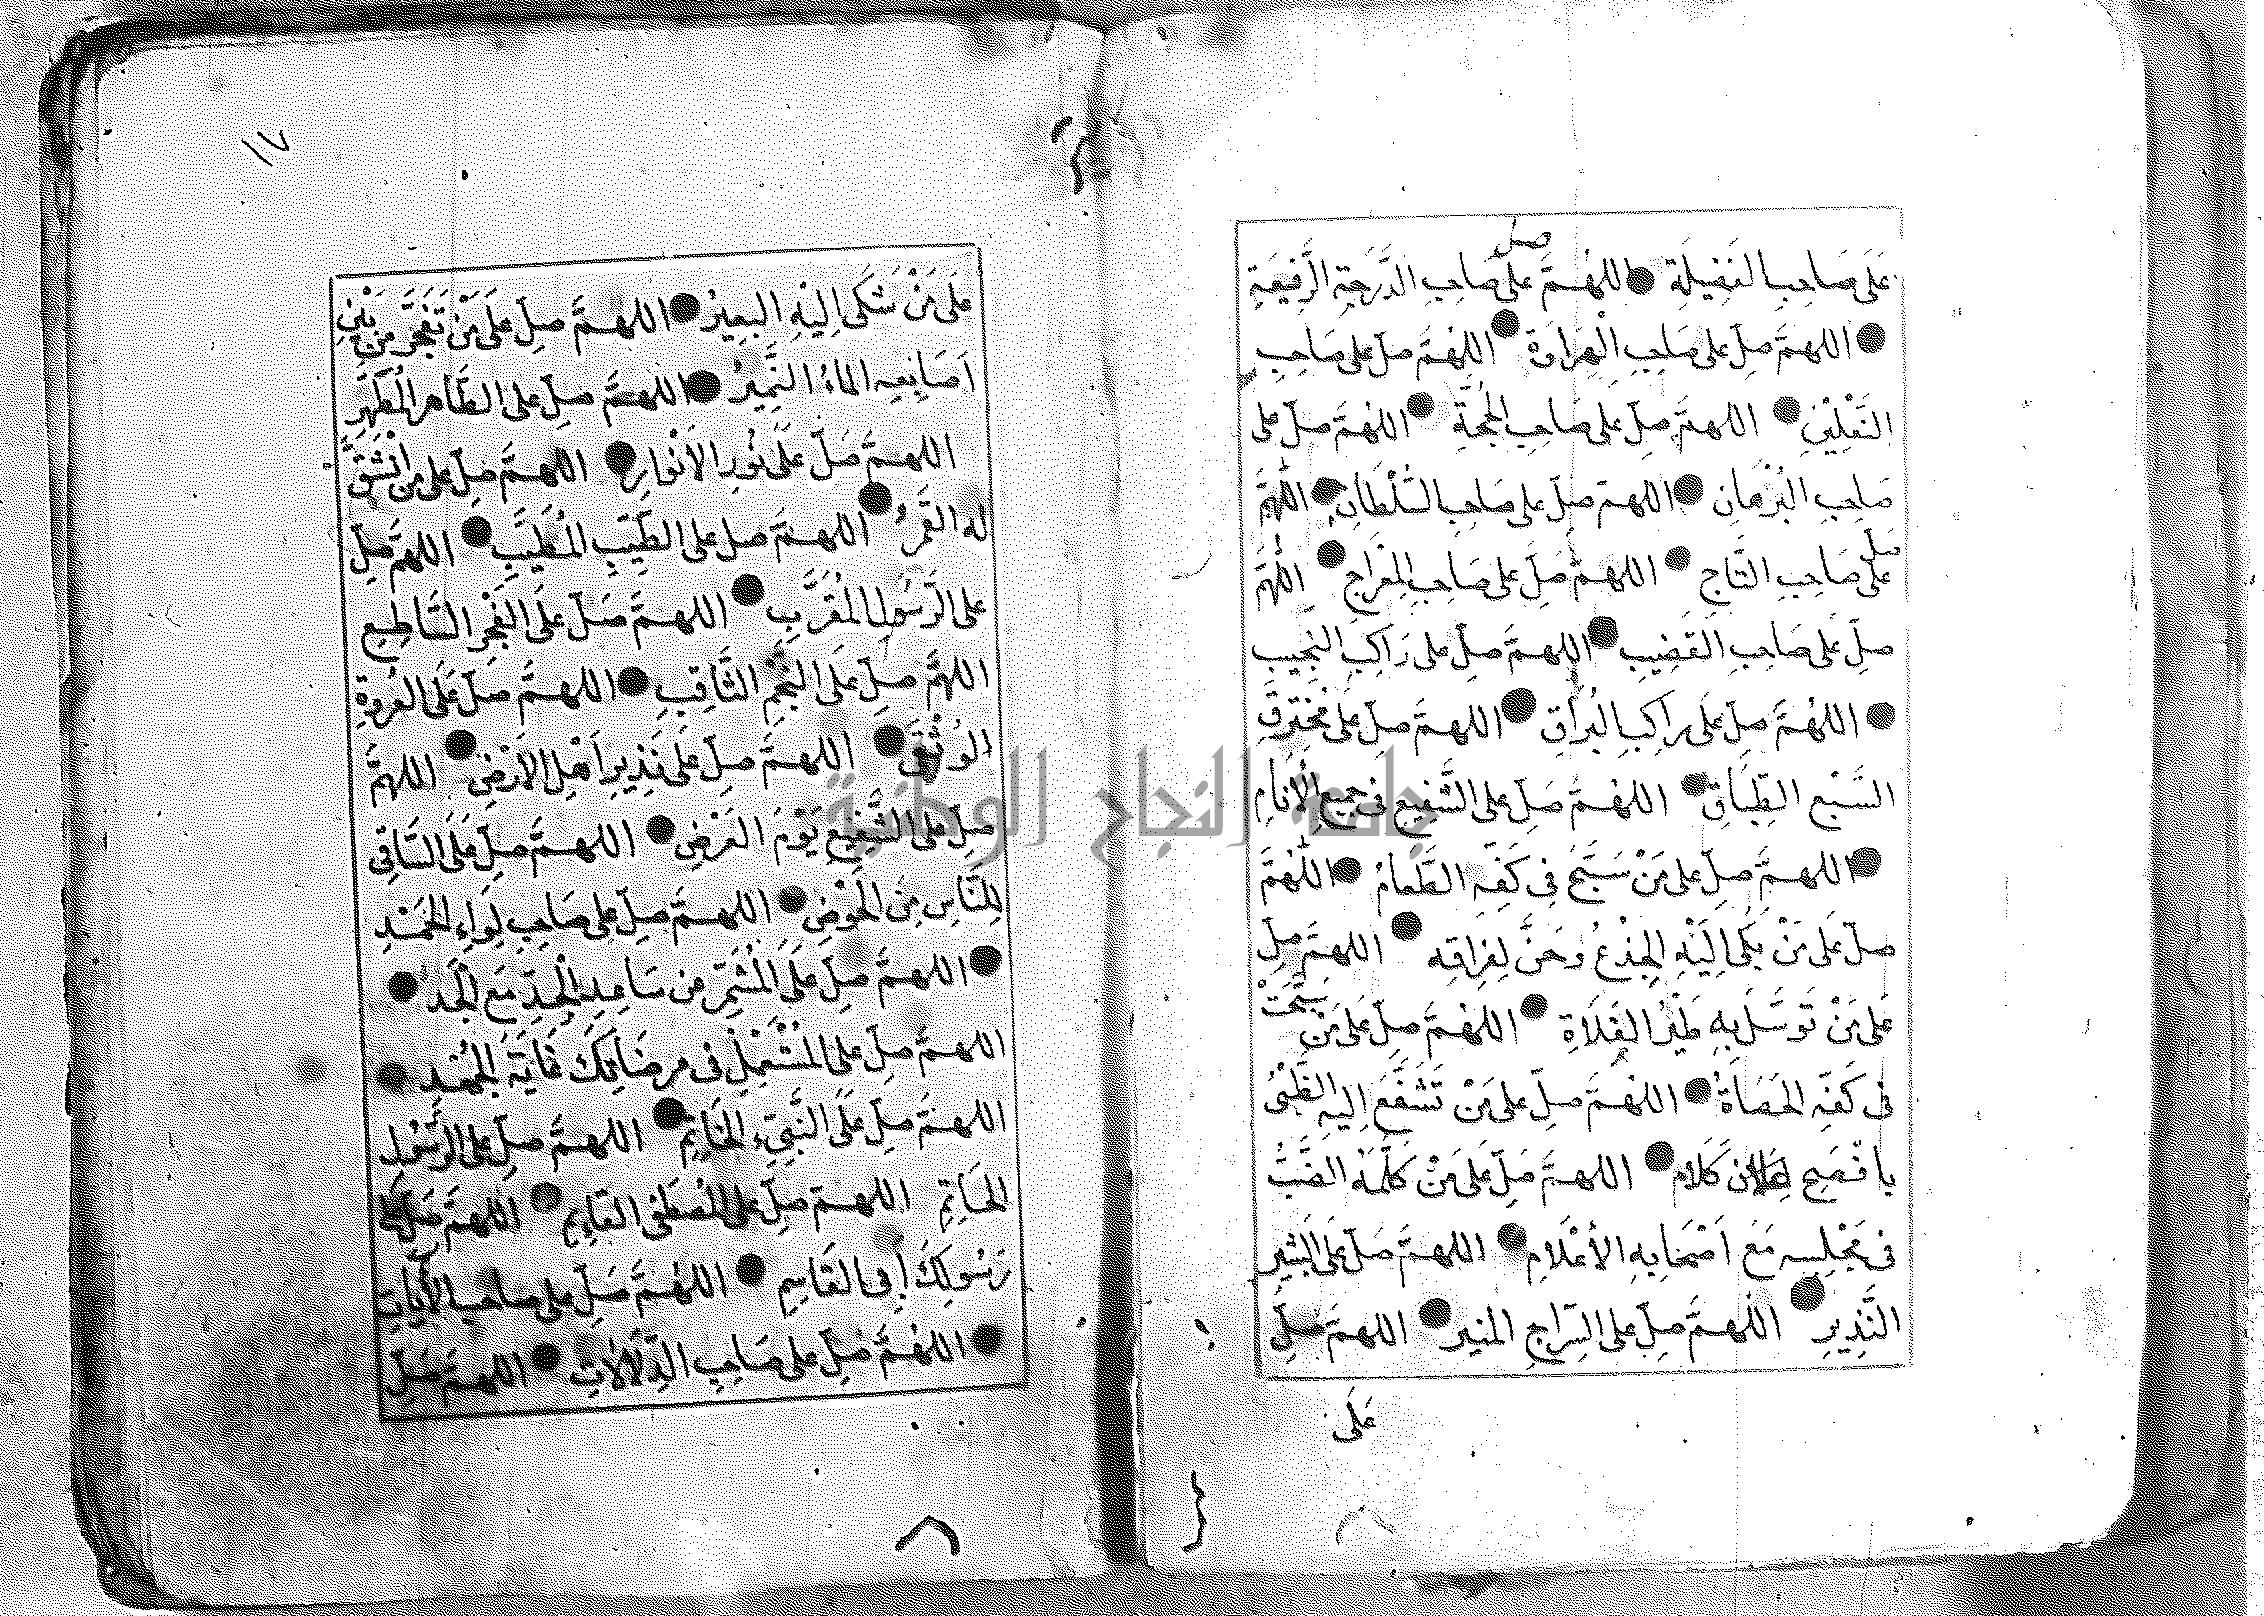 عَلَى صَاحِبِ الفَضِيلَةِ اللهُمَّ صل عَلى صَاحِبِ الدَّرَجَةِ الرَّفِيعَةِ
اللهمَّ صلِّ على صَاحِبِ الهِرَاوَةِ اللهُمَّ صلّ على صَاحِبِ
النَّعْلَيْنِ اللهمَّ صلّ على صَاحِبِ الحُجَّةِ اللهُمَّ صلّ على
صَاحِبِ البُرْهَانِ اللهمّ صلّ على صَاحِبِ السُّلْطَانِ اللهُمَّ
صل عَلَى صَاحِبِ التَّاجِ اللهمَّ صَلِّ على صَاحِبِ المِعْرَاجِ اللهُمَّ
صلِّ عَلى صَاحِبِ القَضِيبِ اللهمَّ صلِّ على رَاكِبِ النَّجِيبِ
اللهُمَّ صلِّ عَلى رَاكِبِ البُرَاقِ اللهمَّ صلّ على مُخْتَرِقِ
السَّبْعِ الطِّبَاقِ اللهُمَّ صَلِّ على الشَّفِيعِ فى جَمِيعِ الأَنَامِ
اللهمَّ صلِّ على مَنْ سَبَّحَ فى كَفِّهِ الطَّعَامُ اللهُمَّ
صلّ عَلَى مَنْ بَكَى اِلَيْهِ الجِذْعُ وَحَنَّ لِفِرَاقِهِ اللهمَّ صلِّ
عَلَى مَنْ تَوَسَّلَ بِهِ طَيْرُ الفَلَاةِ اللهُمَّ صلِّ عَلى مَنْ سَبَّحَتْ
فى كَفِّهِ الحَصَاةُ اللهُمَّ صلِّ على مَنْ تَشَفَّعَ اِليْهِ الظَّبْىُ
بِاَفْصَحِ كَلَام اللهمَّ صَلِّ عَلَى مَنْ كَلَّمَهُ الضَّبُّ
فى مَجْلِسِهِ مَعَ اَصْحَابِهِ الأَعْلَامِ اللهمَّ صَلّ عَلى البَشِيرِ
النَّذِيرِ اللهُمَّ صلِّ على السِّرَاجِ المنير اللهمَّ صلِّ
عَلَى
١٧
عَلَى مَنْ شَكَى اِلَيْهِ البعِيرُ اللهمَّ صلِّ عَلَى مَنْ تَفَجَّرَ مِنْ بَيْنِ
اَصَابِعِهِ الماءُ النَّمِيرُ اللهمَّ صلِّ على الطَّاهر المُطَهَّرِ
اللهمَّ صَلِّ عَلَى نُورِ الاَنْوارِ اللهمَّ صلِّ على مَنِ انْشَقَّ
لَهُ القَمَرُ اللهمَّ صلّ على الطَّيِّبِ المُطَيَّبِ اللهمَّ صلِّ
على الرَّسُولِ المُقَرَّبِ اللهمَّ صَلّ عَلَى الفَجْرِ السَّاطِعِ
اللهُمَّ صلِّ عَلى النَّجْمِ الثَّاقِبِ اللهمَّ صلّ عَلَى العُروَةِ
الوُثْقَى اللهمَّ صلِّ عَلى نَذِيرِ اَهْلِ الاَرْضِ اللهمَّ
صلّ على الشَّفِيعِ يَوْمَ العَرْضِ اللهمَّ صلِّ عَلَى السَّاقى
لِلنَّاسِ مِنَ الحَوْضِ اللهمَّ صلِّ على صَاحِبِ لِوَاءِ الحَمْدِ
اللهمَّ صلِّ عَلَى المُشَمِّرِ عن سَاعِدِ الجِدِّ مَعَ الجَد
اللهمَّ صلِّ عَلَى المُسْتَعْمِلِ فى مرضَاتِكَ غَايَةَ الجُهْدِ
اللهمَّ صلِّ عَلَى النَّبِىِّ الخَاتِمِ اللهمَّ صلِّ على الرَّسُولِ
الخَاتِمِ اللهمّ صلِّ على المُصْطَفى القَايِمِ اللهمَّ صَلِّ على
رَسُولِكَ اَبِى القَاسِمِ اللهُمَّ صَلِّ على صاحبِ الأيَاتِ
اللهُمَّ صلِّ على صَاحِبِ الدِّلَالَاتِ اللهمَّ صَلّ
جامعة النجاح الوطنية